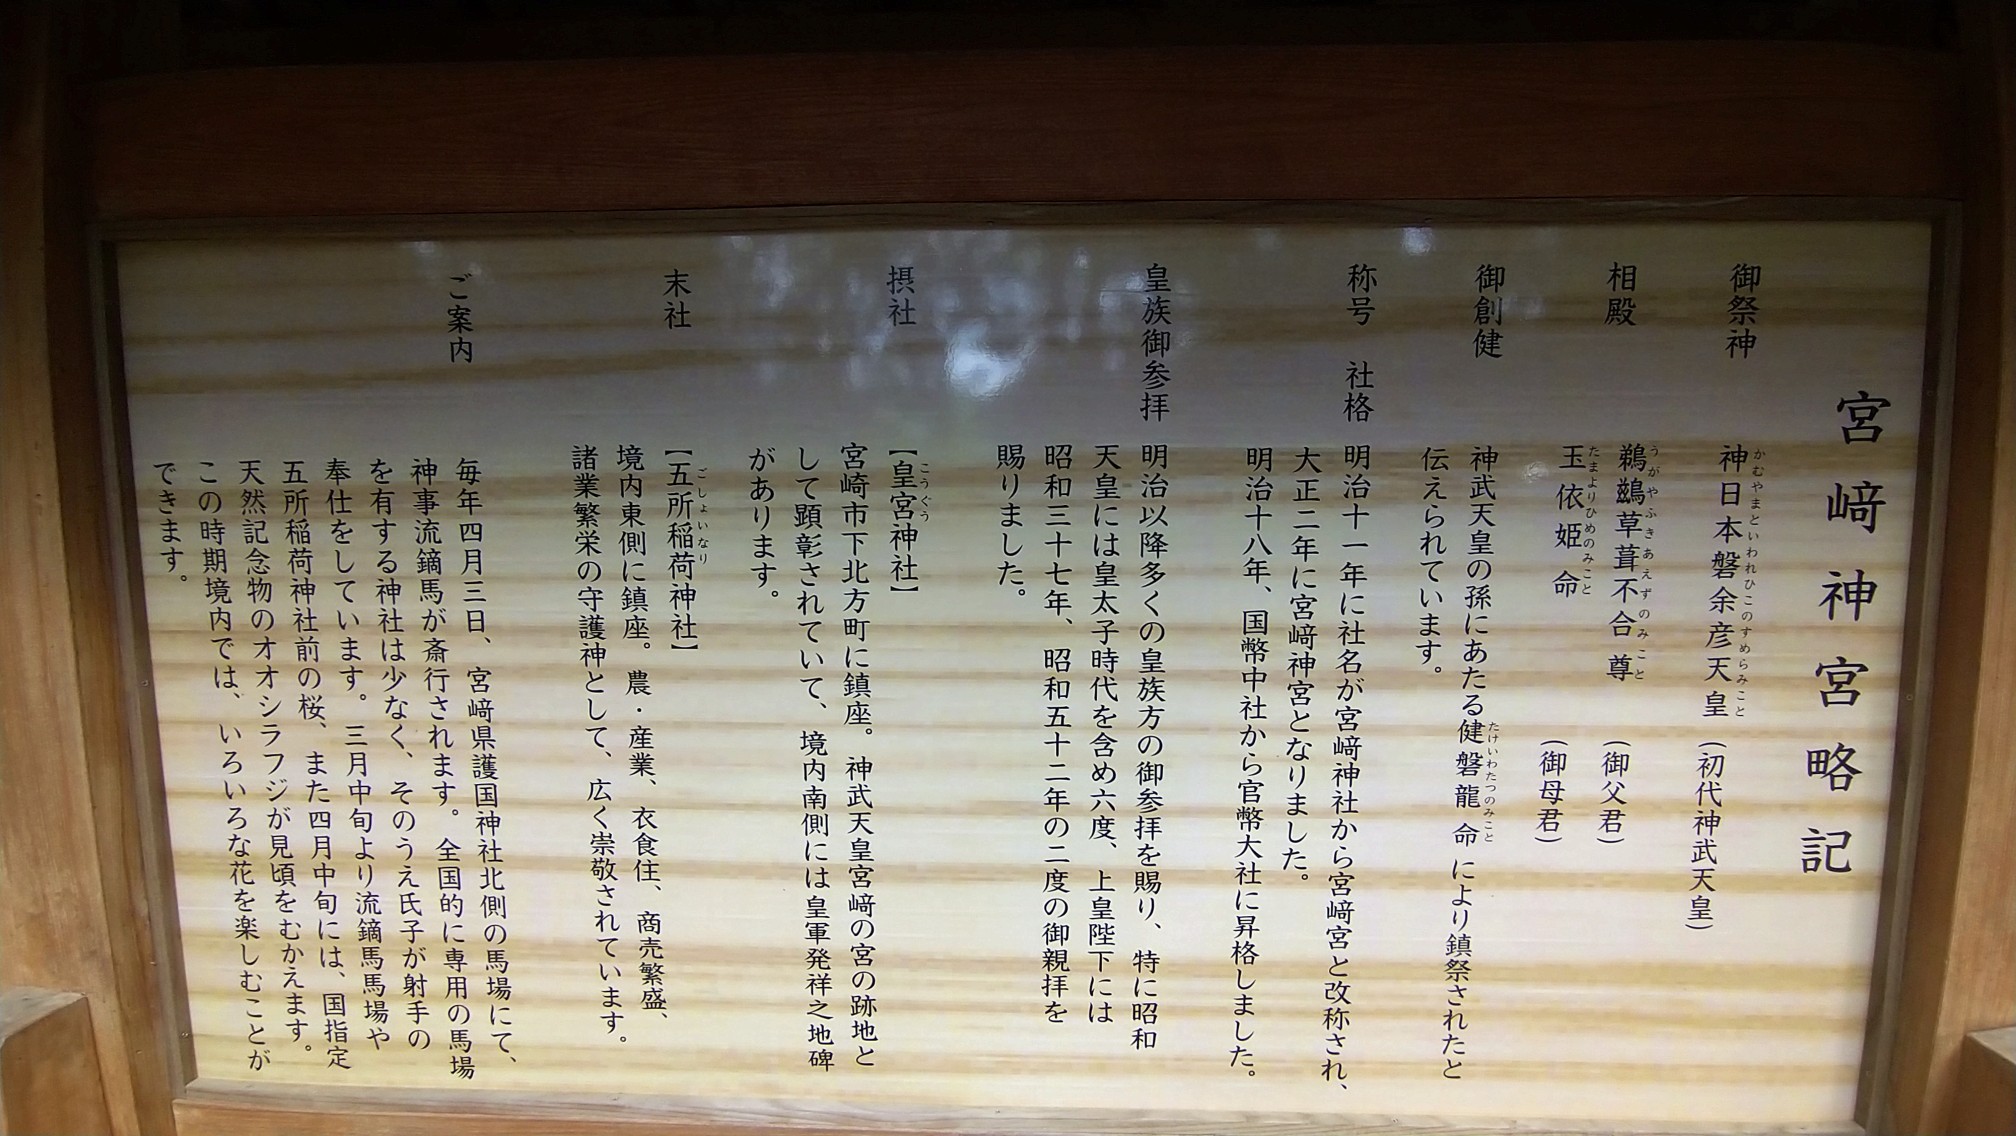 宮﨑神宮略記
御祭神　神日本磐余彦天皇（初代神武天皇）
かむやまといわれひこのすめらみこと
相殿　鵜鷀草葺不合尊（御父君）
うがやふきあえずのみこと
玉依姫命（御母君）
たまよりひめのみこと
御創健　神武天皇の孫にあたる健磐龍命により鎮祭されたと
たけいわたつのみこと
伝えられています。
称号　社格　明治十一年に社名が宮﨑神社から宮﨑宮と改称され、
大正二年に宮﨑神宮となりました。
明治十八年、国幣中社から官幣大社に昇格しました。
皇族御参拝　明治以降多くの皇族方の御参拝を賜り、特に昭和
天皇には皇太子時代を含め六度、上皇陛下には
昭和三十七年、昭和五十二年の二度の御親拝を
賜りました。
摂社　【皇宮神社】
こうぐう
宮崎市下北方町に鎮座。神武天皇宮﨑の宮の跡地と
して顕彰されていて、境内南側には皇軍発祥之地碑
があります。
末社　【五所稲荷神社】
ごしょいなり
境内東側に鎮座。農・産業、衣食住、商売繁盛、
諸業繁栄の守護神として、広く崇敬されています。
ご案内　毎年四月三日、宮﨑県護国神社北側の馬場にて、
神事流鏑馬が斎行されます。全国的に専用の馬場
を有する神社は少なく、そのうえ氏子が射手の
奉仕をしています。三月中旬より流鏑馬馬場や
五所稲荷神社前の桜、また四月中旬には、国指定
天然記念物のオオシラフジが見頃をむかえます。
この時期境内では、いろいろな花を楽しむことが
できます。